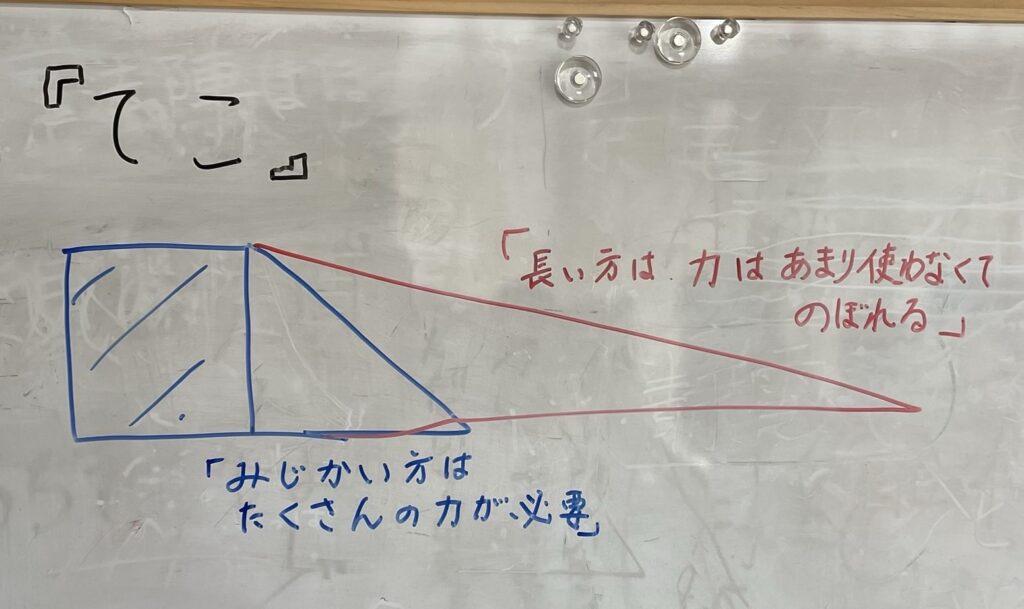 『てこ』
「長い方は 力は あまり使わなくて
のぼれる」
「みじかい方は
たくさんの力が必要」